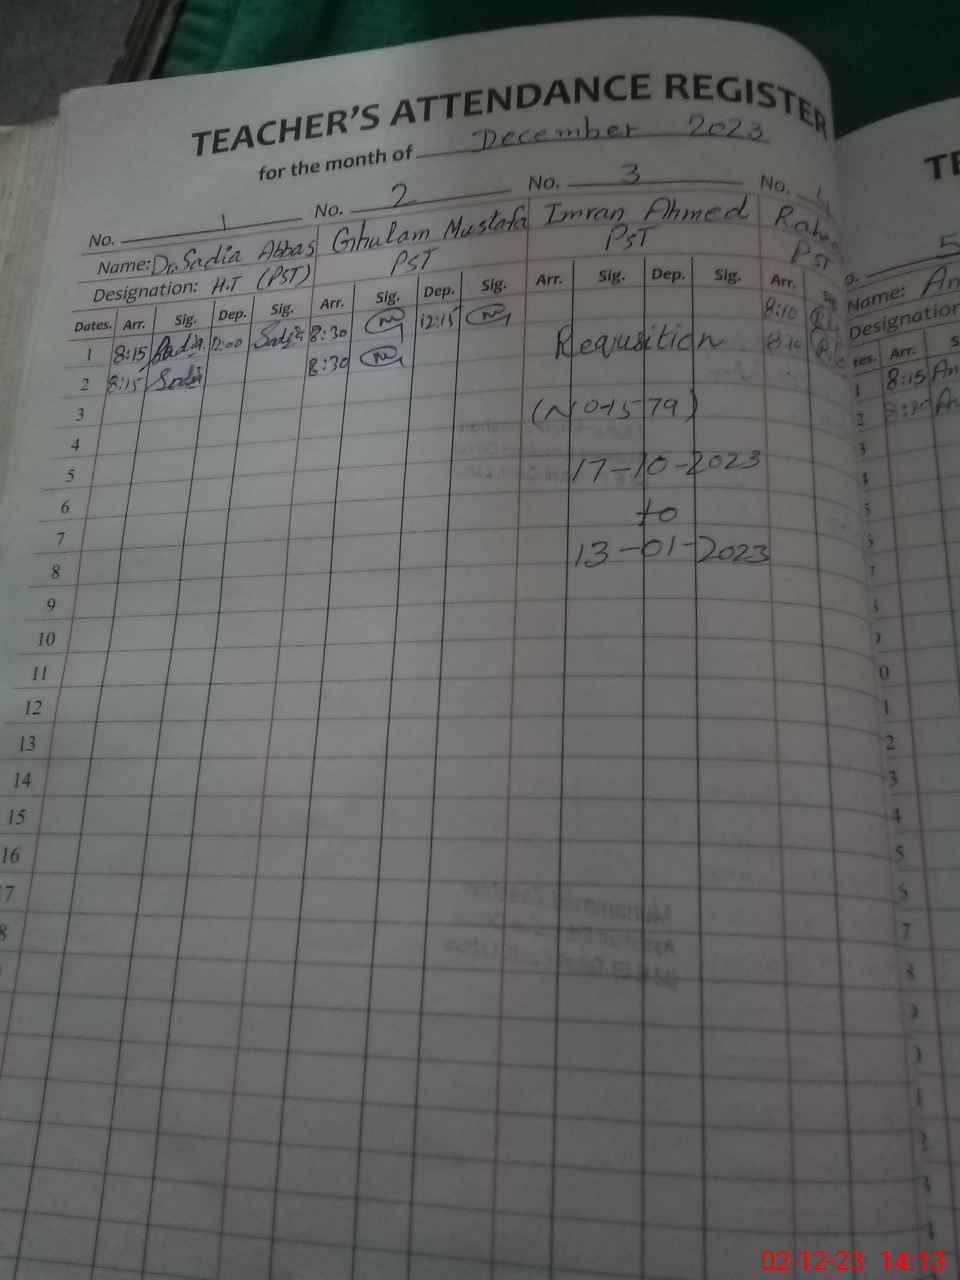 TEACHER'S ATTENDANCE REGISTER
for the month of December 2023
No. 1 No. 2 No. 3 No.
Name: Dr. Sadia Abbas Ghulam Mustafa Imran Ahmed
Designation: H.T (PST) PST PST PST
Dates. Arr. Sig. Dep. Sig. Arr. Sig. Dep. Sig. Arr. Sig. Dep. Sig. Arr.
1 8:15 Sadia Sadia 8:30 12:15 8:10
2 8:15 Sadia 8:30 Requsition 8:10
3 (No-1579)
4
5 17-10-2023
6 to
7 13-01-2023
8
9
10
11
12
13
14
15
16
5
Name:
Designation
Arr.
1 8:15
02-12-23 14:13